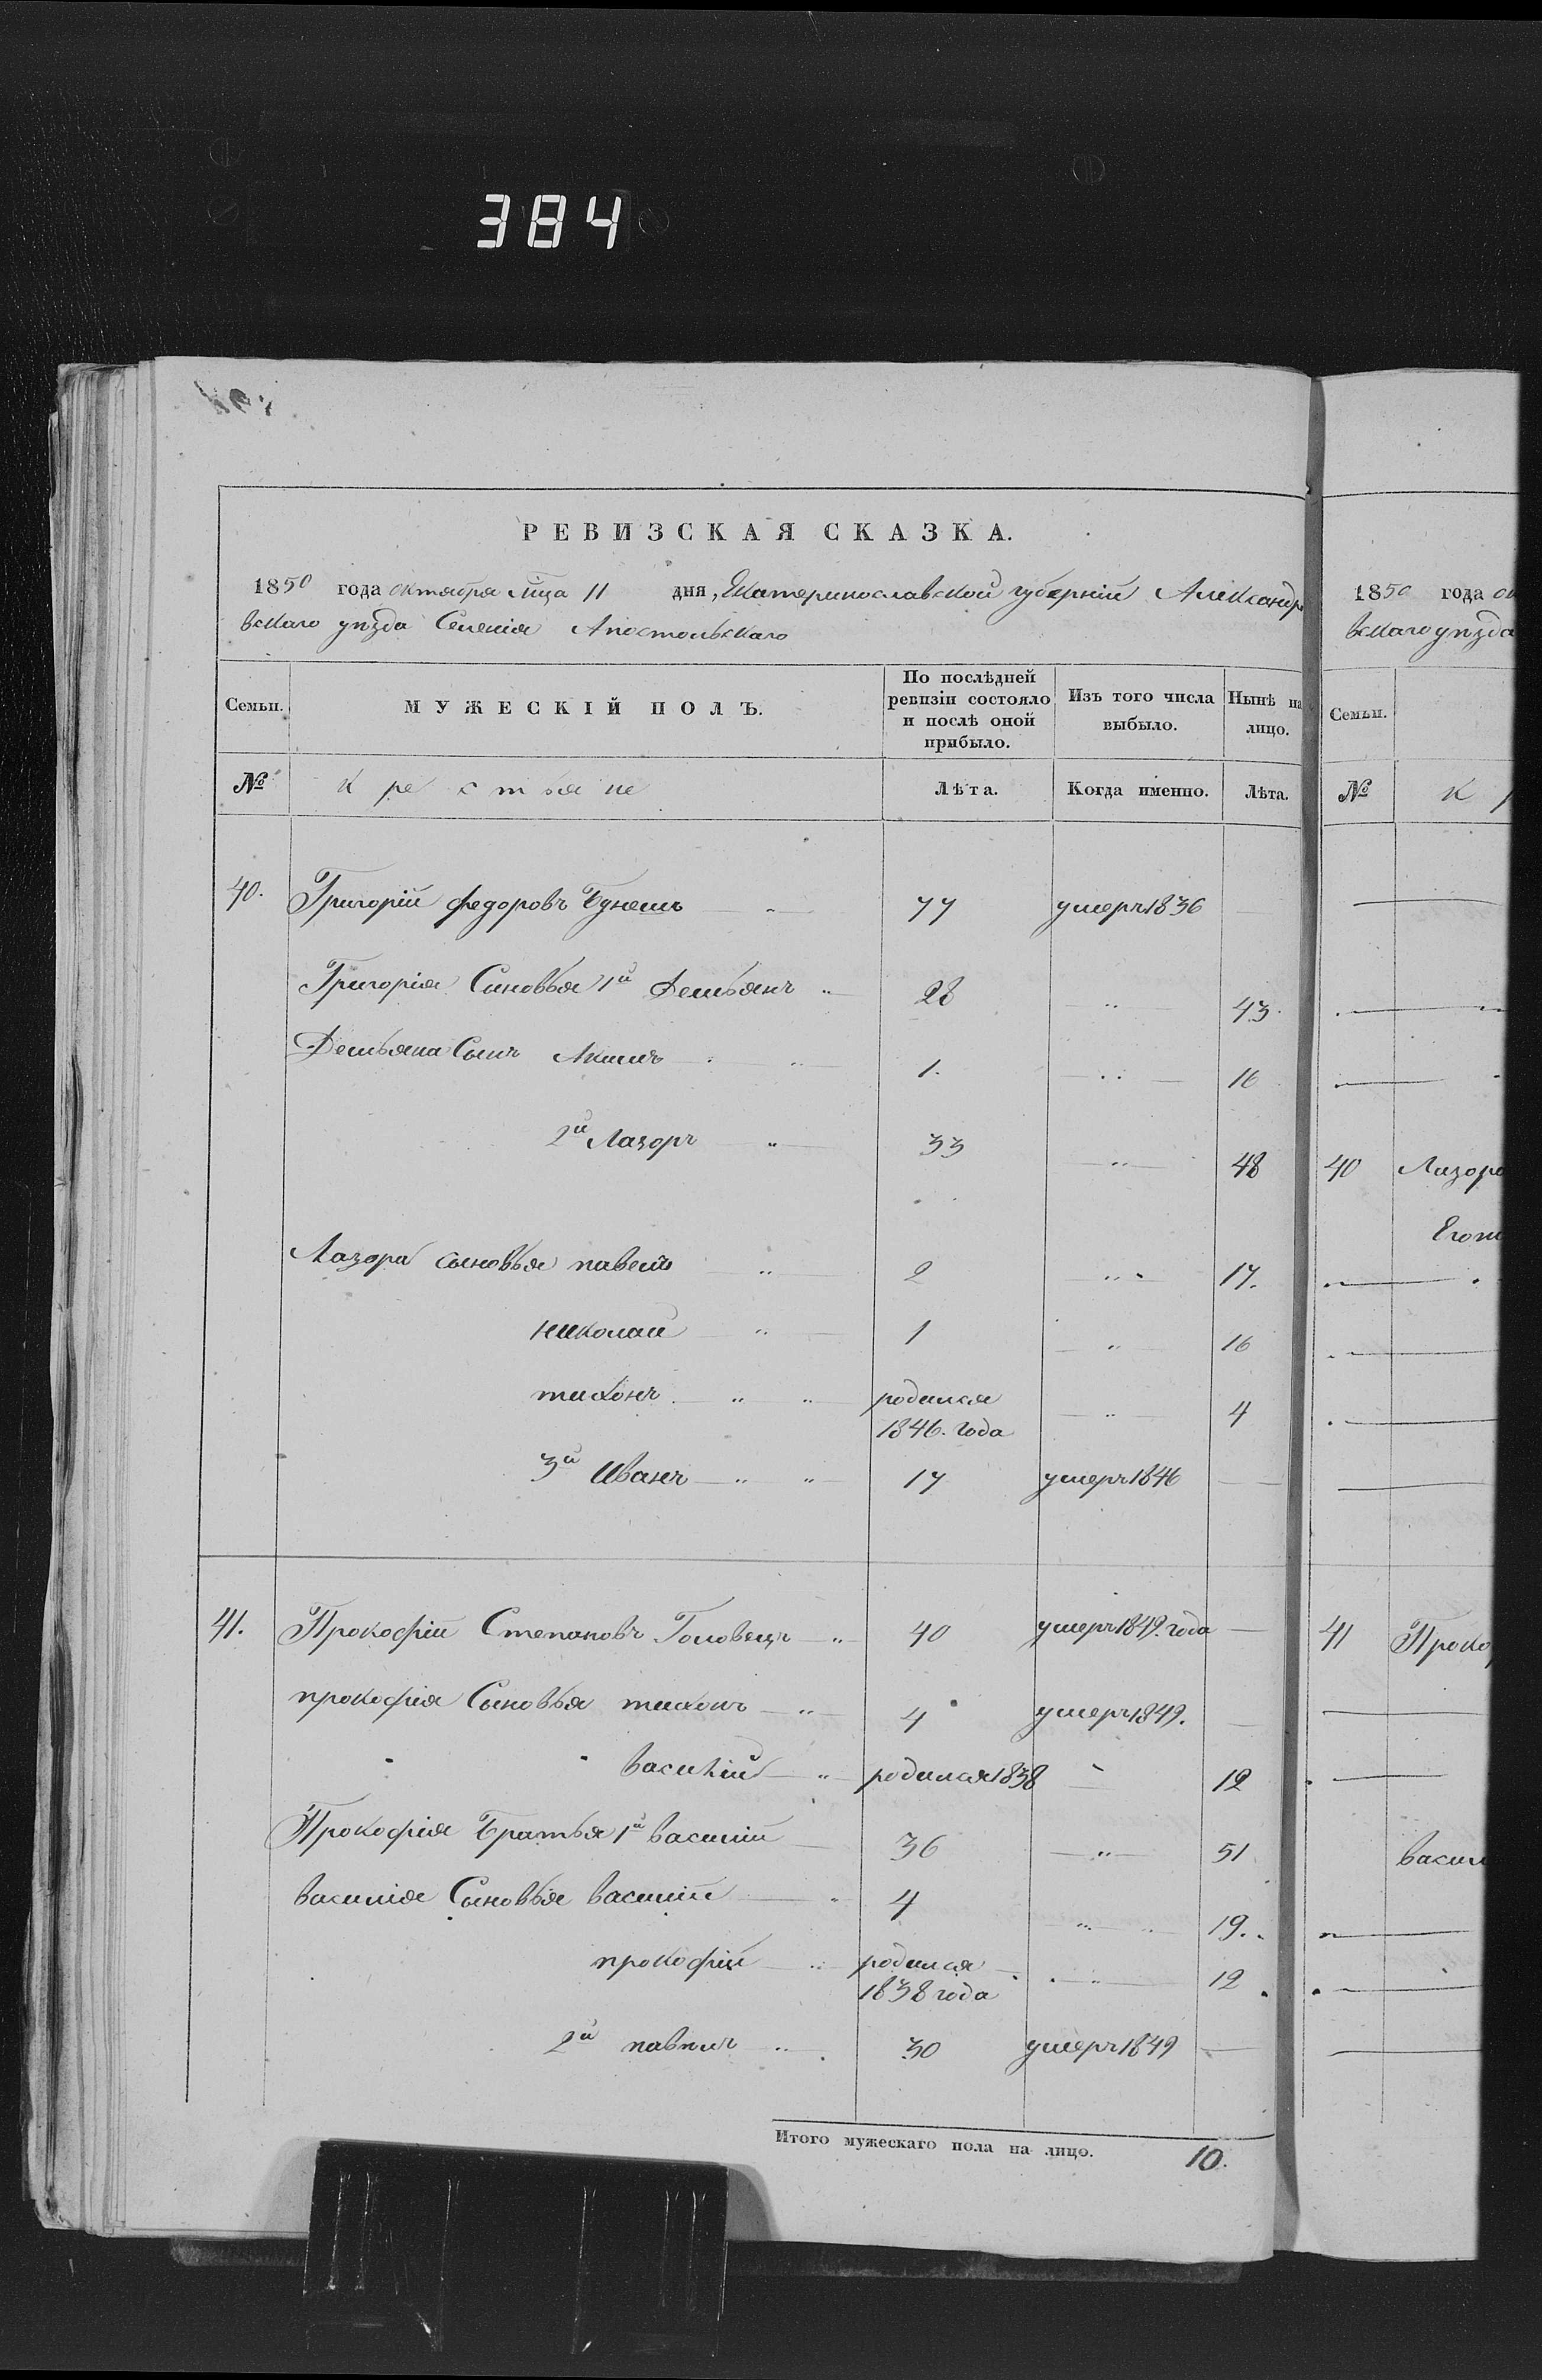 384
РЕВИЗСКАЯ СКАЗКА.
1850 года октября мца 11 дня, Екатеринославской губерніи Александр
вскаго уѣзда Селенія Апостольскаго
Семьи.
МУЖЕСКІЙ ПОЛЪ.
По послѣдней ревизіи состояло и послѣ оной прибыло.
Изъ того числа выбыло.
Нынѣ на лицо.
№ крестьяне Лѣта. Когда именно. Лѣта.
40. Григорій федоровъ 77 умеръ 1836
Григорія Сыновья 1й Демьянъ 28 43.
Демьяна Сынъ Акимъ 1. 16
2й Лазоръ 33 48
Лазора сыновья павелъ 2 17.
николай 1 16
тихонъ родился 1846. года 4
3й Иванъ 17 умеръ 1846
41. Прокофій Степановъ Головецъ 40 умеръ 1849. года
прокофія Сыновья тихонъ 4 умеръ 1849.
василій родился 1838 12
Прокофія Братья 1й василій 36 51
василія Сыновья василій 4 19.
прокофій родился 1838 года 12
2й 30 умеръ 1849
Итого мужескаго пола на лицо. 10.
1850 года ок
вскаго уѣзда
Семьи.
№ к р
40 Лазора
41 Прокоф
васил